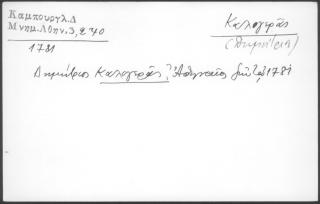 Καμπουργλ.Δ
Μνημ.Αθην.3,240
1781
Καλογεράς
(Δημήτριος)
Δημήτριος Καλογεράς, Ἀθηναῖος 1781